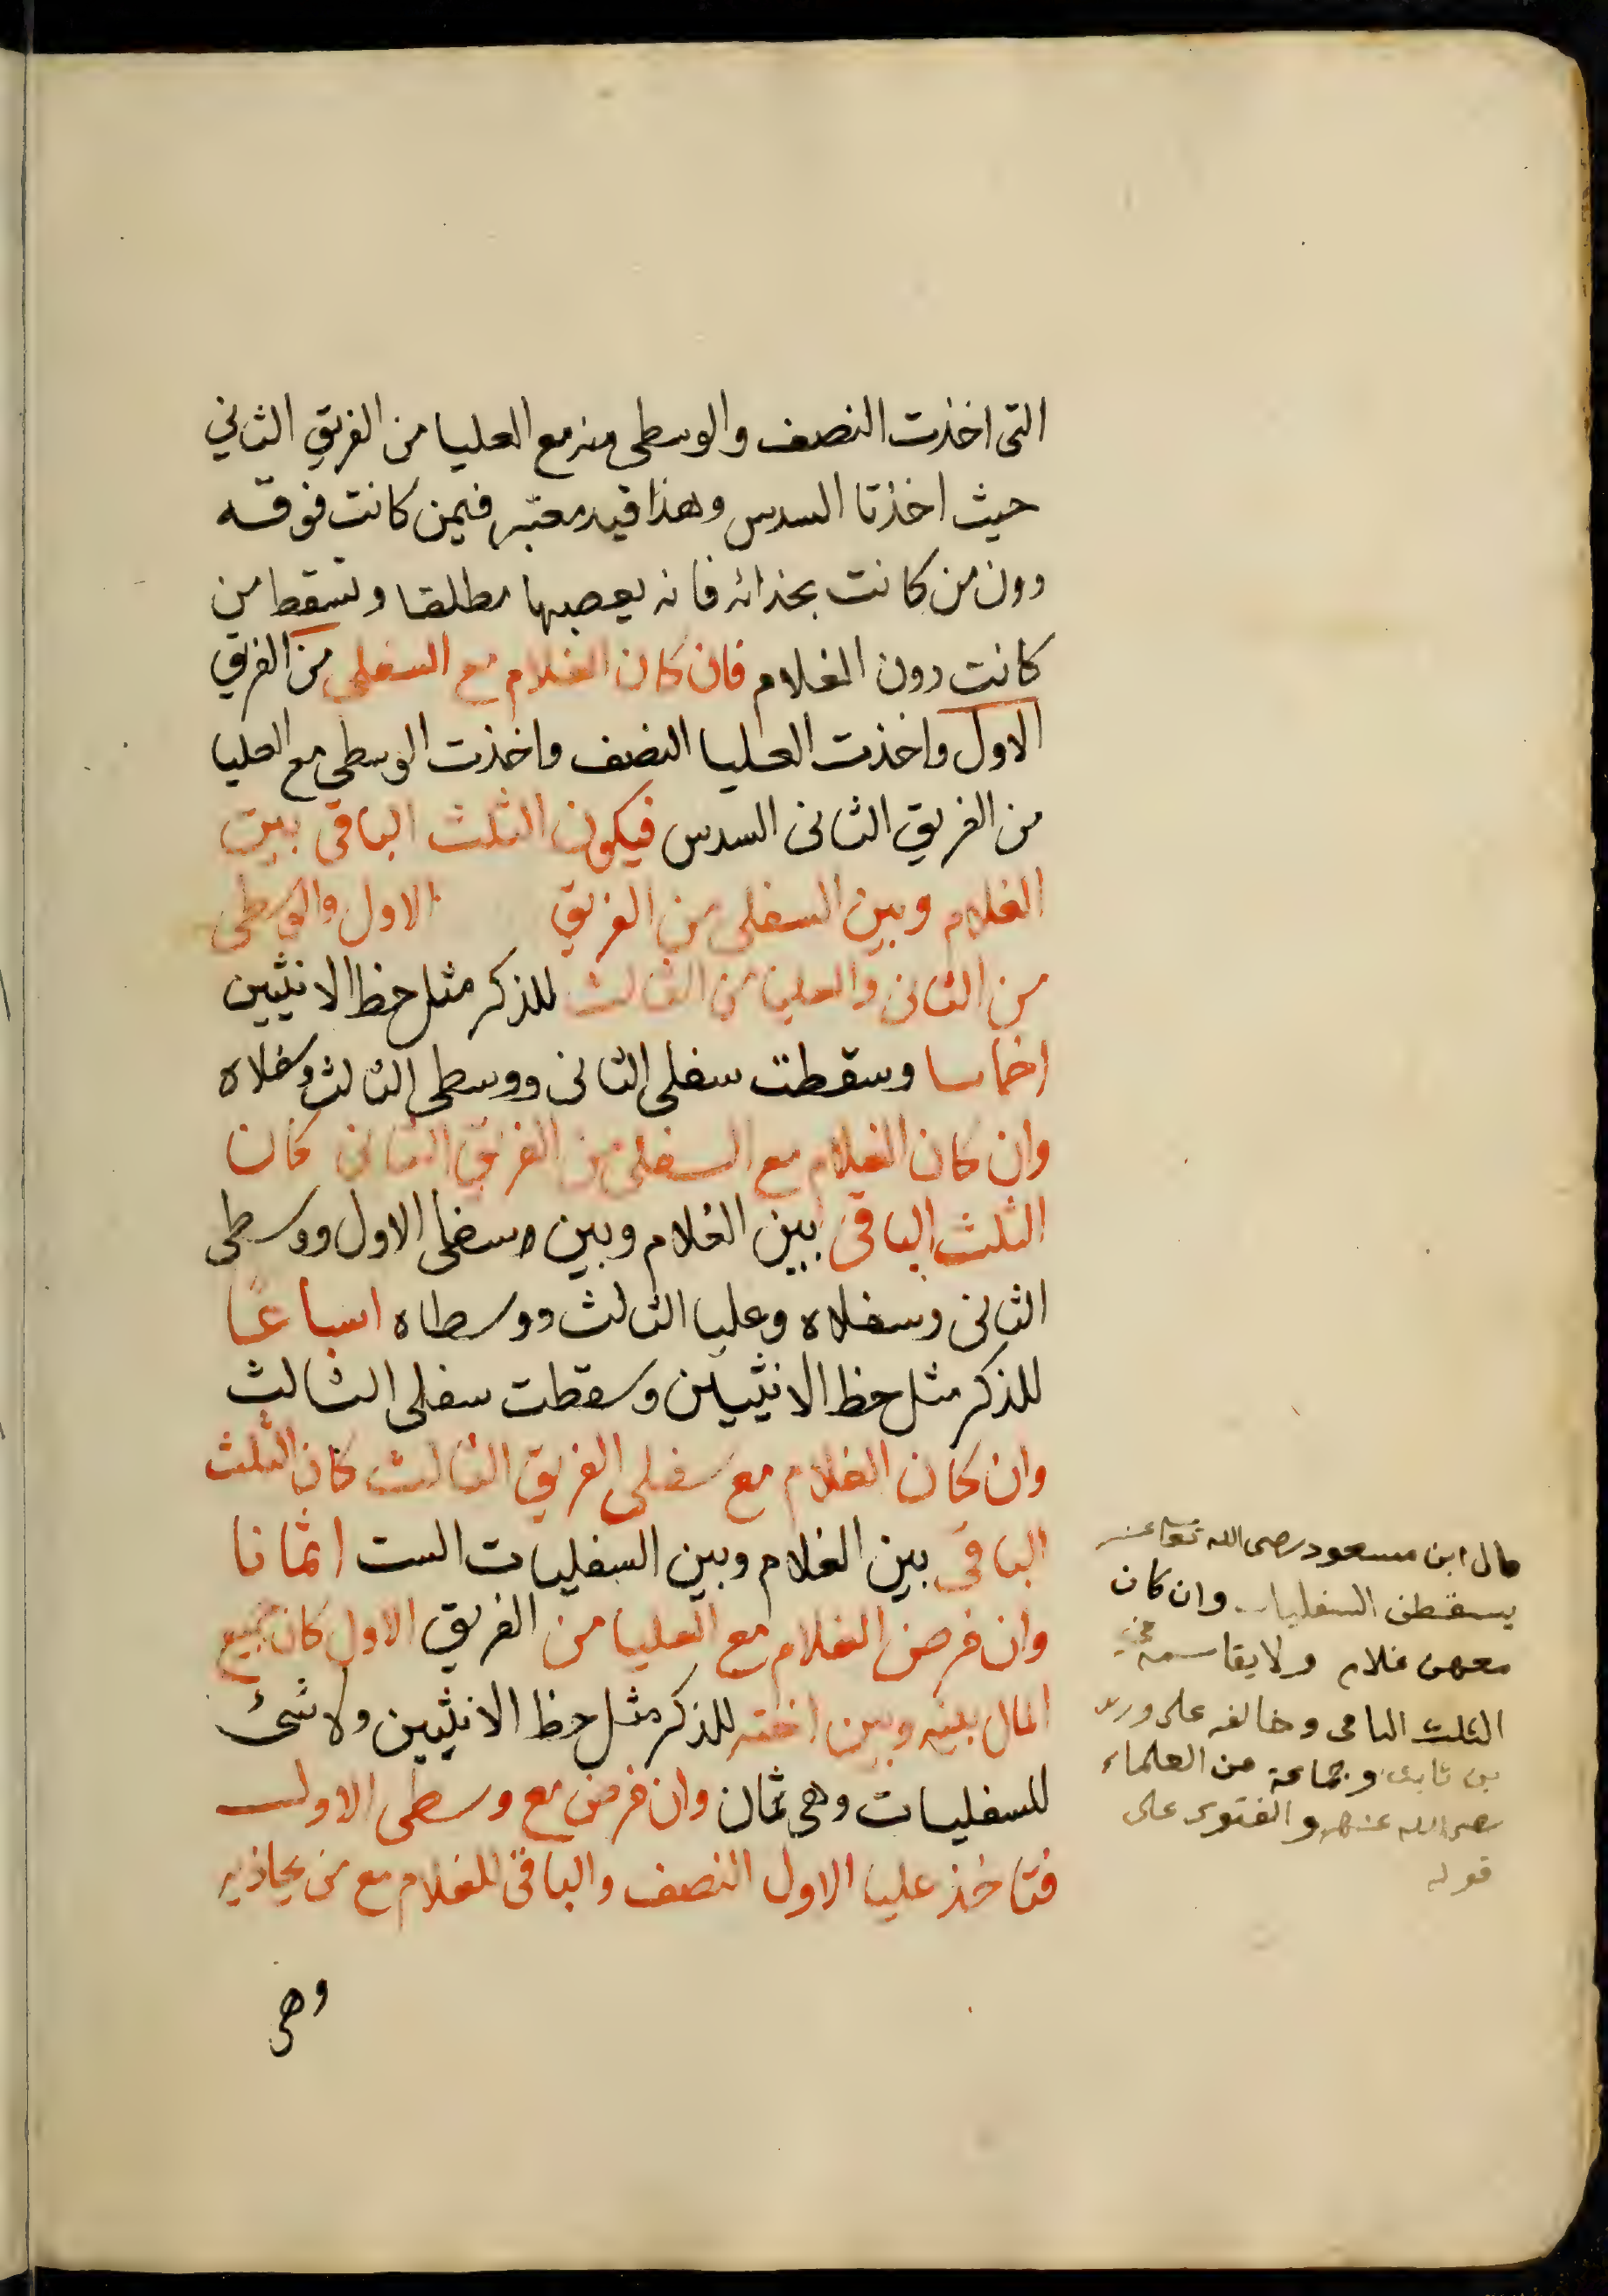 التى اخذت النصف والوسطى منه مع العليا من الفريق الثاني
حيث اخذتا السدس وهذا قيد معتبر فيمن كانت فوقه
دون من كانت بحذائه فانه يعصبها مطلقا وتسقط من
كانت دون الغلام فان كان الغلام مع السفلى من الفريق
الاول واخذت العليا النصف واخذت الوسطى مع العليا
من الفريق الثانى السدس فيكون الثلث الباقى بين
الغلام وبين السفلى من الفريق الاول والوسطى
من الثانى والعليا من الثالث للذكر مثل حظ الانثيين
اخماسا وسقطت سفلى الثانى ووسطى الثالث وسفلاه
وان كان الغلام مع السفلى من الفريق الثانى كان
الثلث الباقى بين الغلام وبين سفلى الاول ووسطى
الثانى وسفلاه وعليا الثالث ووسطاه اسباعًا
للذكر مثل حظ الانثيين وسقطت سفلى الثالث
وان كان الغلام مع سفلى الفريق الثالث كان الثلث
الباقى بين الغلام وبين السفليات الست اثمانا
وان فرض الغلام مع العليا من الفريق الاول كان جميع
المال بينه وبين اخته للذكر مثل حظ الانثيين ولا شئ
للسفليات وهى ثمان وان فرض مع وسطى الاول
فتاخذ عليا الاول النصف والباقى للغلام مع من يحاذيه
وهى
قال ابن مسعود رضى الله تعا عنه
يسقطن السفليات وان كان
معهن غلام ولا يقاسمه فى
الثلث الباقى وخالفه على وزيد
بن ثابت وجماعة من العلماء
رضى الله عنهم والفتوى على
قوله